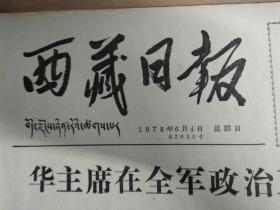 西藏日報
བོད་ལྗོངས་ཉིན་རེའི་ཚགས་པར
1978年6月4日 星期日
华主席在全军政治